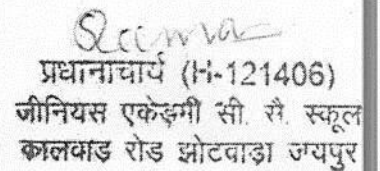 प्रधानाचार्य (H-121406)
जीनियस एकेड़मी सी. सै. स्कूल
कालवाड रोड झोटवाड़ा जयपुर